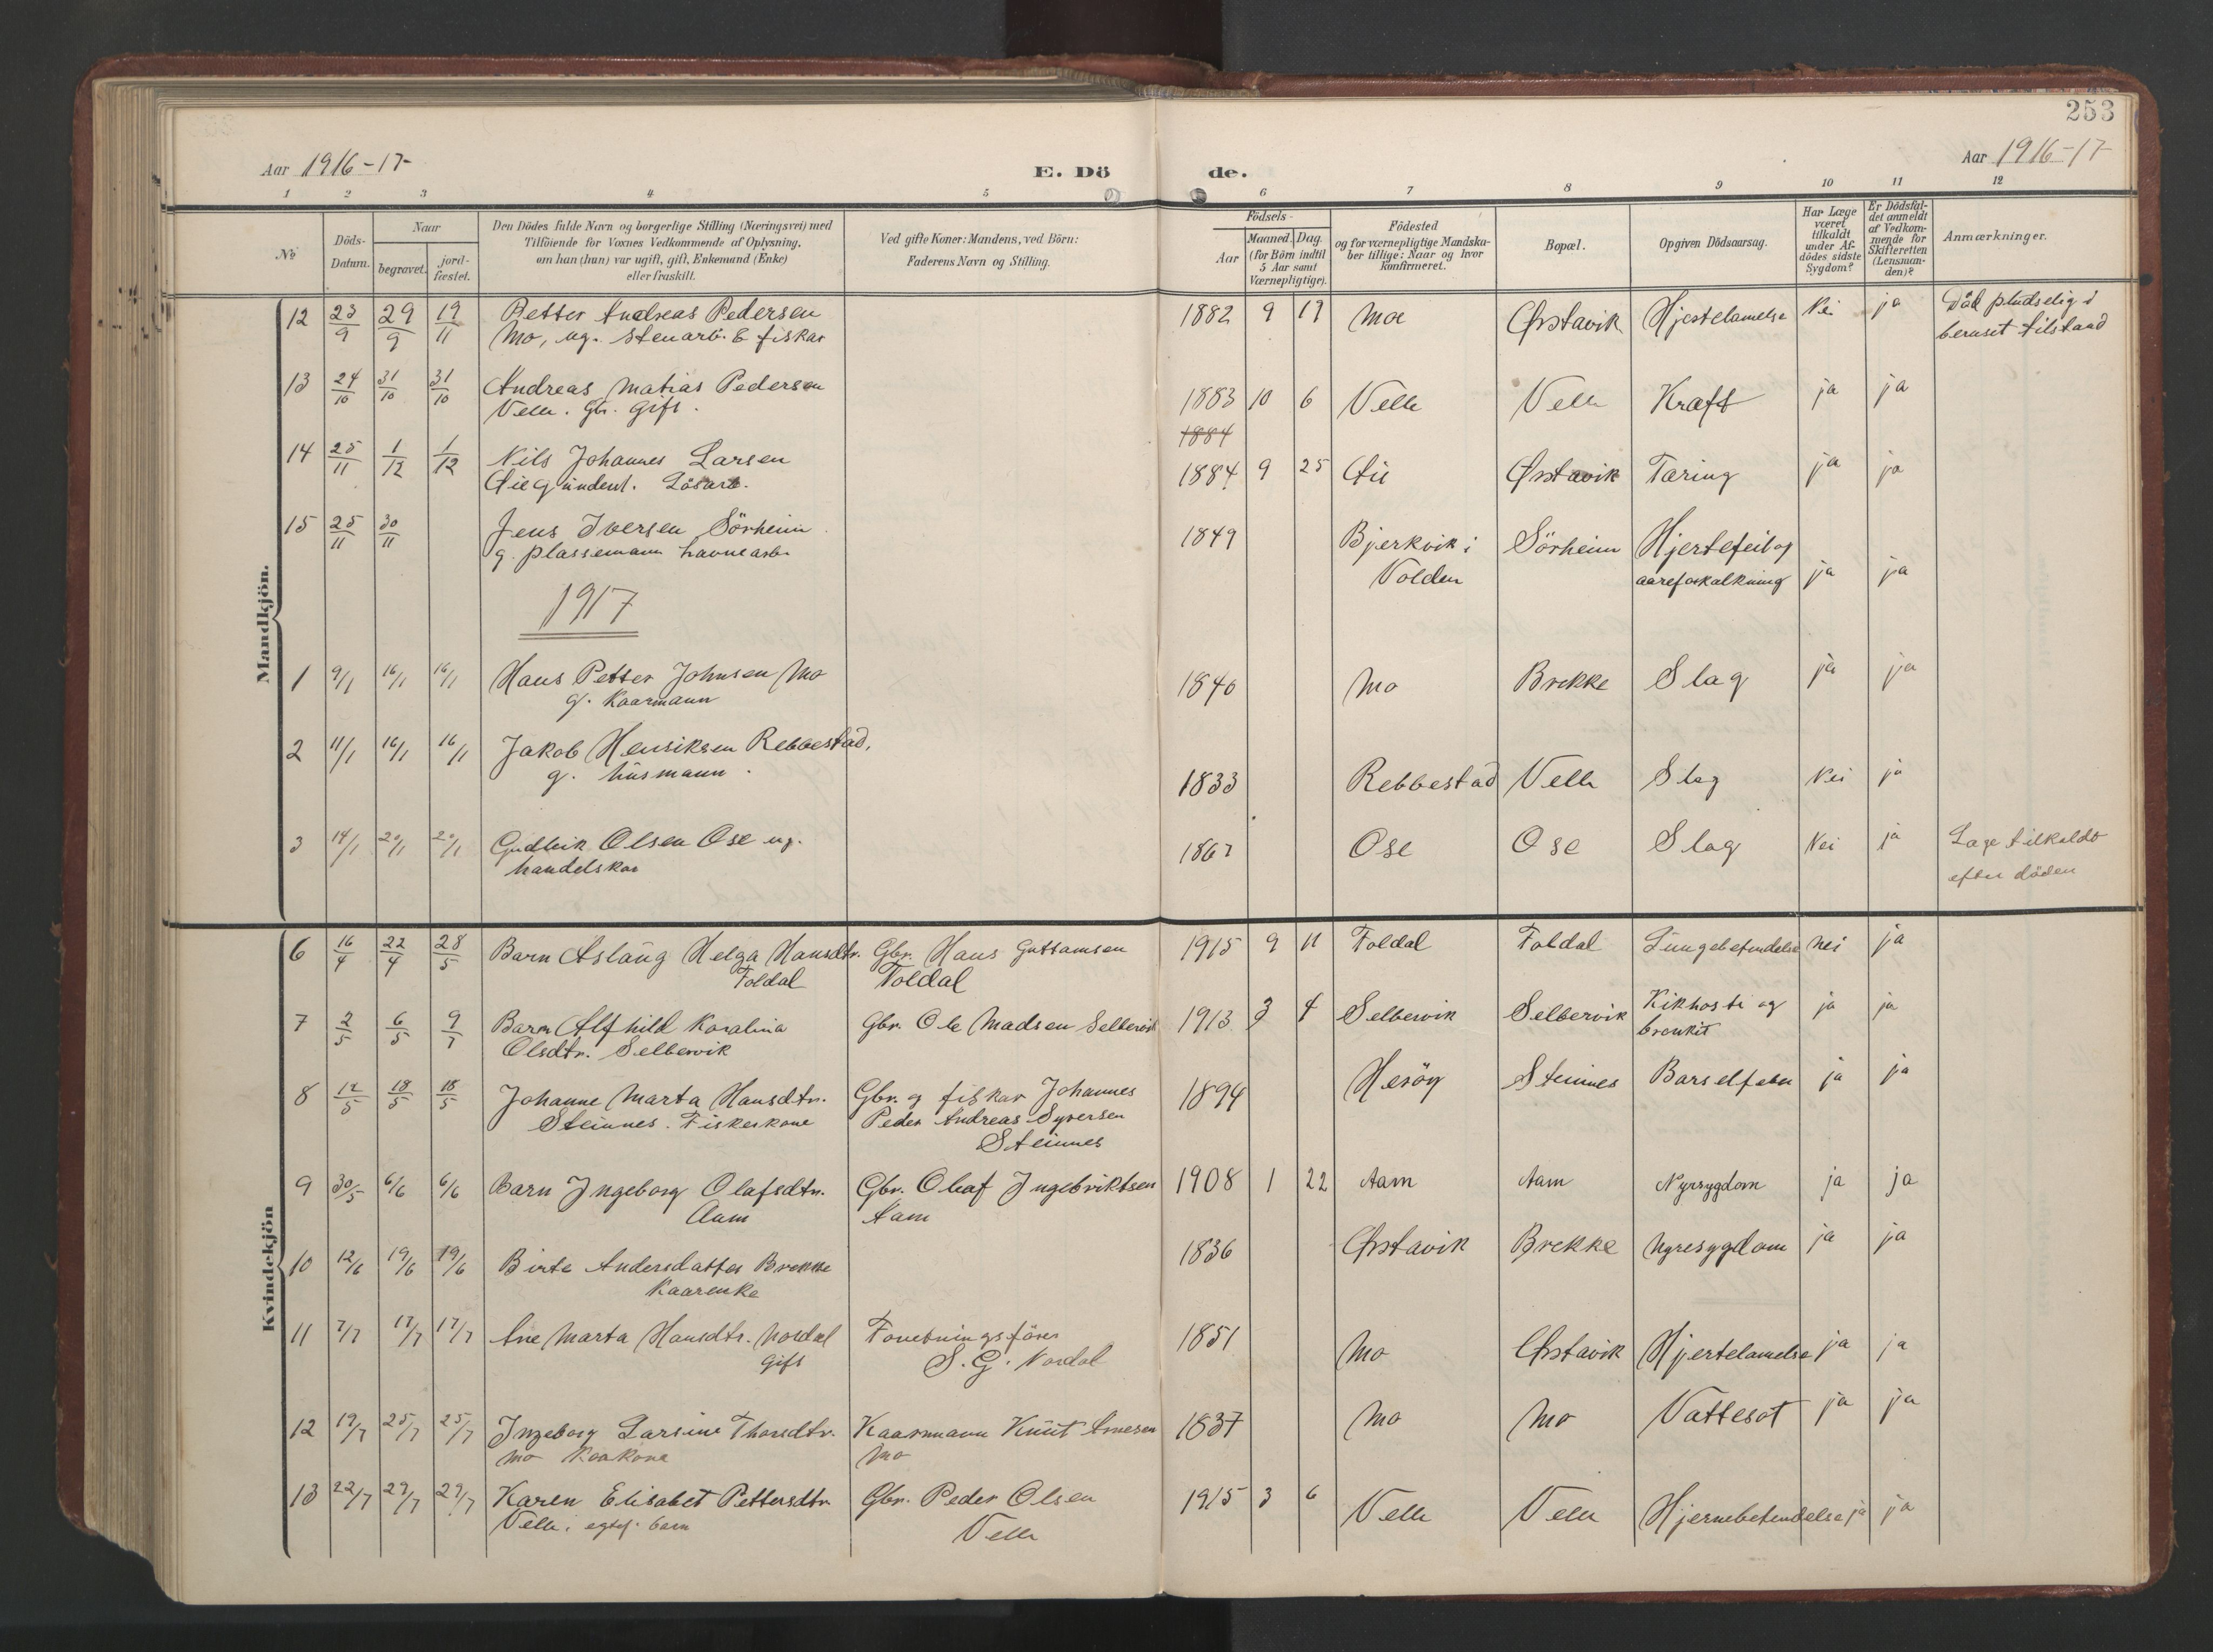 253
Aar 1916-17
E. Dö de.
Aar 1916-17
1 2 3 4 5 6 7 8 9 10 11 12
No
Döds-Datum.
Naar
begravet.
jord-fæstet.
Den Dödes fulde Navn og borgerlige Stilling (Næringsvei) med
Tilföiende for Voxnes Vedkommende af Oplysning,
om han (hun) var ugift, gift, Enkemand (Enke)
eller fraskilt.
Ved gifte Koner: Mandens, ved Börn:
Faderens Navn og Stilling.
Födsels-
Aar
Maaned. Dag.
(for Börn indtil
5 Aar samt
Værnepligtige).
Födested
og for værnepligtige Mandska-
ber tillige: Naar og hvor
konfirmeret.
Bopæl.
Opgiven Dödsaarsag.
Har Læge
været
tilkaldt
under Af-
dödes sidste
Sygdom?
Er Dödsfal-
det anmeldt
af Vedkom-
mende for
Skifteretten
(Lensman-
den)?
Anmærkninger.
Mandkjön.
12 23/9 29/9 19/11 Petter Andreas Pedersen 1882 9 17 Moe Ørstavik Hjertelamelse Nei ja Död pludselig i
Mo, ug. Stenarb. & fisker beruset tilstand
13 24/10 31/10 31/10 Andreas Matias Pedersen 1883 10 6 Velle Velle Kræft ja ja
Velle. Gbr. Gift.
1884
14 25/11 1/12 1/12 Nils Johannes Larsen 1884 9 25 Øie Ørstavik Tæring ja ja
Øie
15 25/11 30/11 Jens Iversen Sörheim 1849 Bjerkvik i Sörheim Hjertefeil og
g. plassemann havnearb. Volden aareforkalkning ja ja
1917
1 9/1 16/1 16/1 Hans Petter Johnsen Mo 1840 Mo Brekke Slag ja ja
g. Kaarmann
2 11/1 16/1 16/1 Jakob Henriksen Rebbestad, 1833 Rebbestad Velle Slag Nei ja
g. husmann.
3 14/1 20/1 20/1 Gudleik Olsen Ose ug. 1867 Ose Ose Slag Nei ja Læge tilkaldt
handelskar efter döden
Kvindekjön
6 16/4 22/4 28/5 Barn Aslaug Helga Hansdtr. Gbr. Hans Guttormsen 1915 9 11 Foldal Foldal Lungebetendelse nei ja
Foldal Foldal
7 2/5 6/5 9/7 Barn Alfhild Karolina Gbr. Ole Madsen Selbervik 1913 3 4 Selbervik Selbervik Kikhoste og ja ja
Olsdtr. Selbervik bronkit
8 12/5 18/5 18/5 Johanne Marta Hansdtr. Gbr. og fisker Johannes 1894 Heröy Steinnes Barselfeber ja ja
Steinnes. Fiskerkone Peder Andreas Syversen
Steinnes
9 30/5 6/6 6/6 Barn Ingeborg Olafsdtr. Gbr. Olaf Ingebriktsen 1908 1 22 Aam Aam Nyresygdom ja ja
Aam Aam
10 12/6 19/6 19/6 Birte Andersdatter Brekke 1836 Ørstavik Brekke Nyresygdom ja ja
Kaarenke
11 7/7 17/7 17/7 Ane Marta Hansdtr. Nordal Foretningsförer 1851 Mo Ørstavik Hjertelamelse ja ja
gift S. G. Nordal
12 19/7 25/7 25/7 Ingeborg Larsine Thorsdtr. Kaarmann Knut Arnesen 1837 Mo Mo Vattesot ja ja
Mo Kaarkone Mo
13 22/7 27/7 27/7 Karen Elisabet Pettersdtr. Gbr. Peder Olsen 1915 3 6 Velle Velle Hjernebetendelse ja ja
Velle, egtef. barn Velle